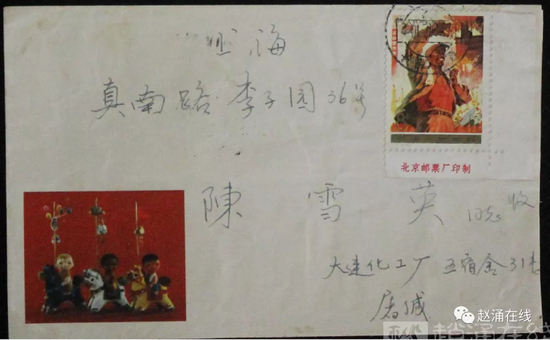 上海
真南路李子园36号
北京邮票厂印制
陳雪英 同志收
大连化工厂五宿舍31舍
赵涌在线
赵涌在线